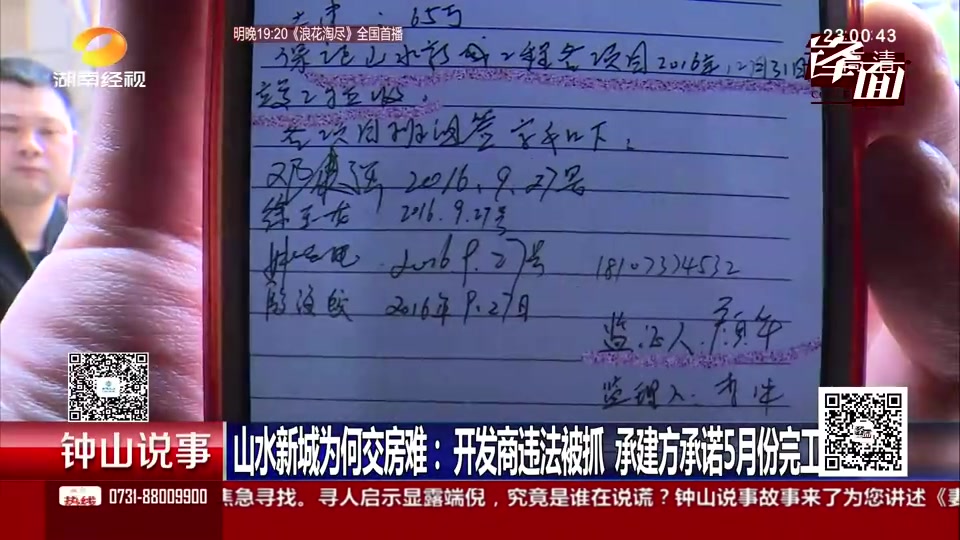 明晚19:20《浪花淘尽》全国首播
23:00:43
湖南经视
高清
65万
保证山水新城工程各项目2016年12月31日
竣工验收。
各项目班组签字如下：
2016.9.27号
2016.9.27号
2016.9.27号 18107374532
2016年9.27日
监证人：
监理人：
钟山说事
山水新城为何交房难：开发商违法被抓 承建方承诺5月份完工
热线 0731-88009900 焦急寻找。寻人启示显露端倪，究竟是谁在说谎？钟山说事故事来了为您讲述《